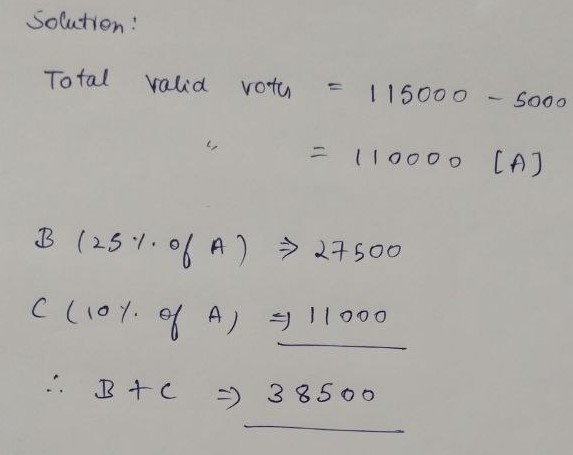 Solution:
Total valid votes = 115000 - 5000
" = 110000 [A]
B (25%. of A) ⇒ 27500
C (10%. of A) ⇒ 11000
∴ B + C ⇒ 38500